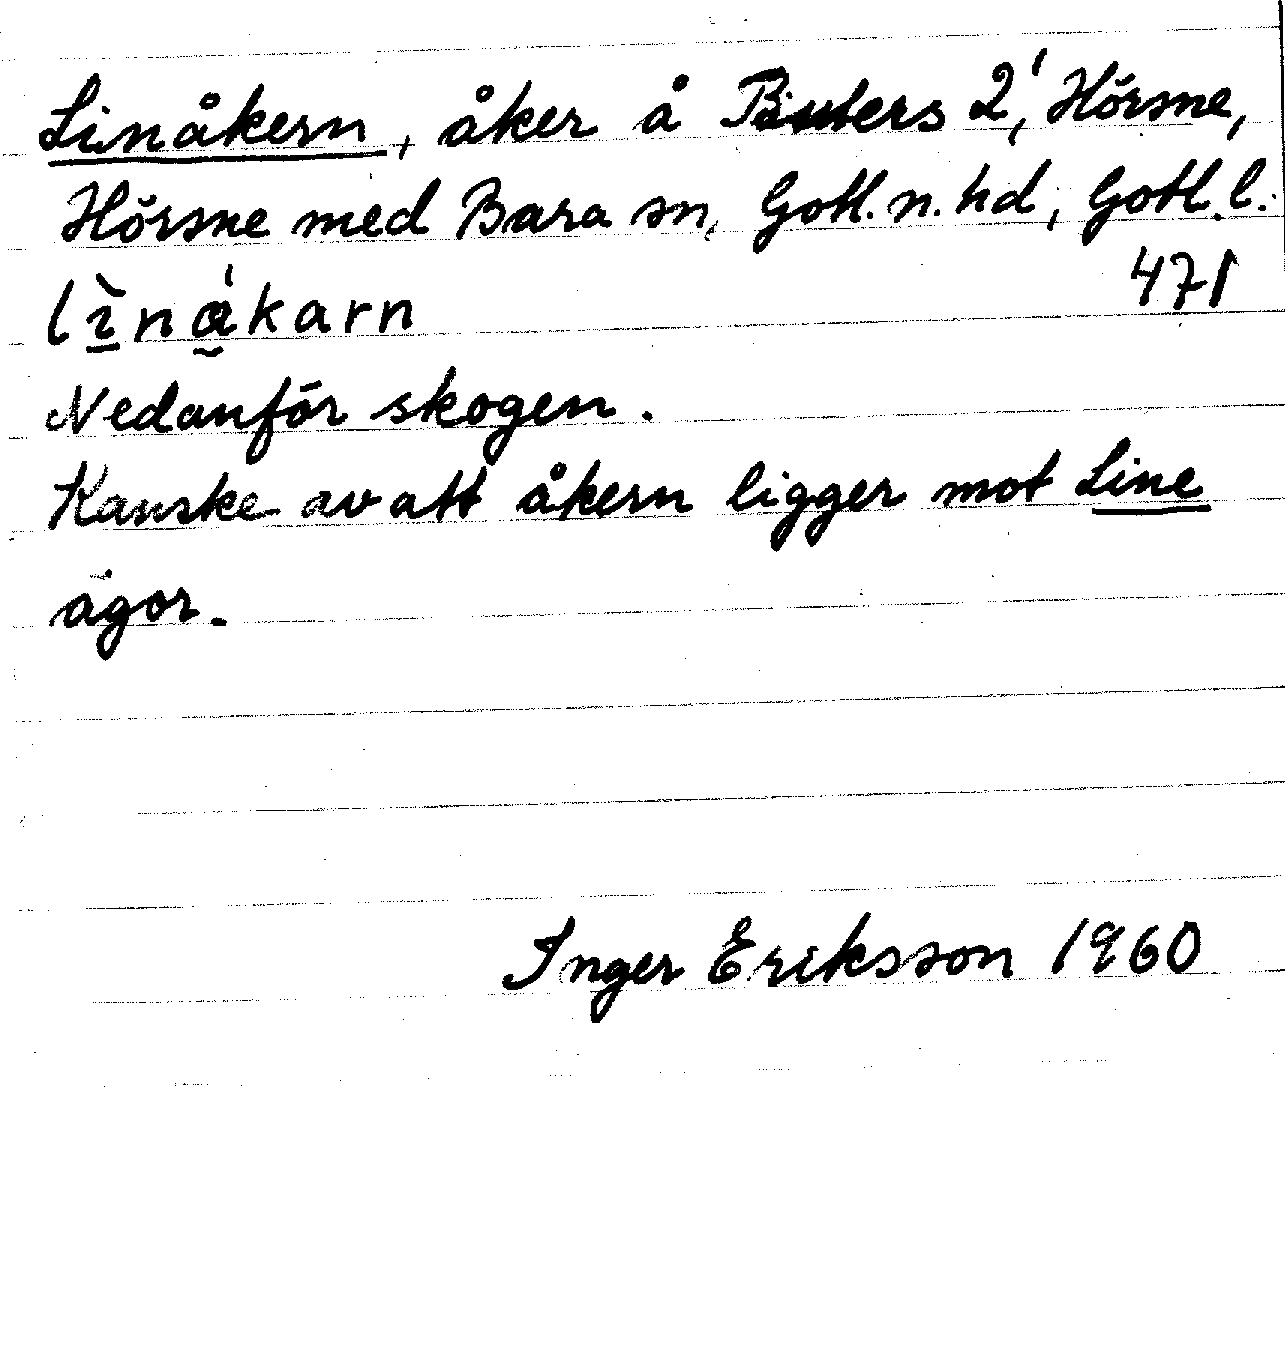 Linåkern, åker å Buters 2¹, Hörsne,
Hörsne med Bara sn, Gotl. n. hd, Gotl. l.:
lìnákarn 471
Nedanför skogen.
Kanske av att åkern ligger mot Line
ägor.
Inger Eriksson 1960